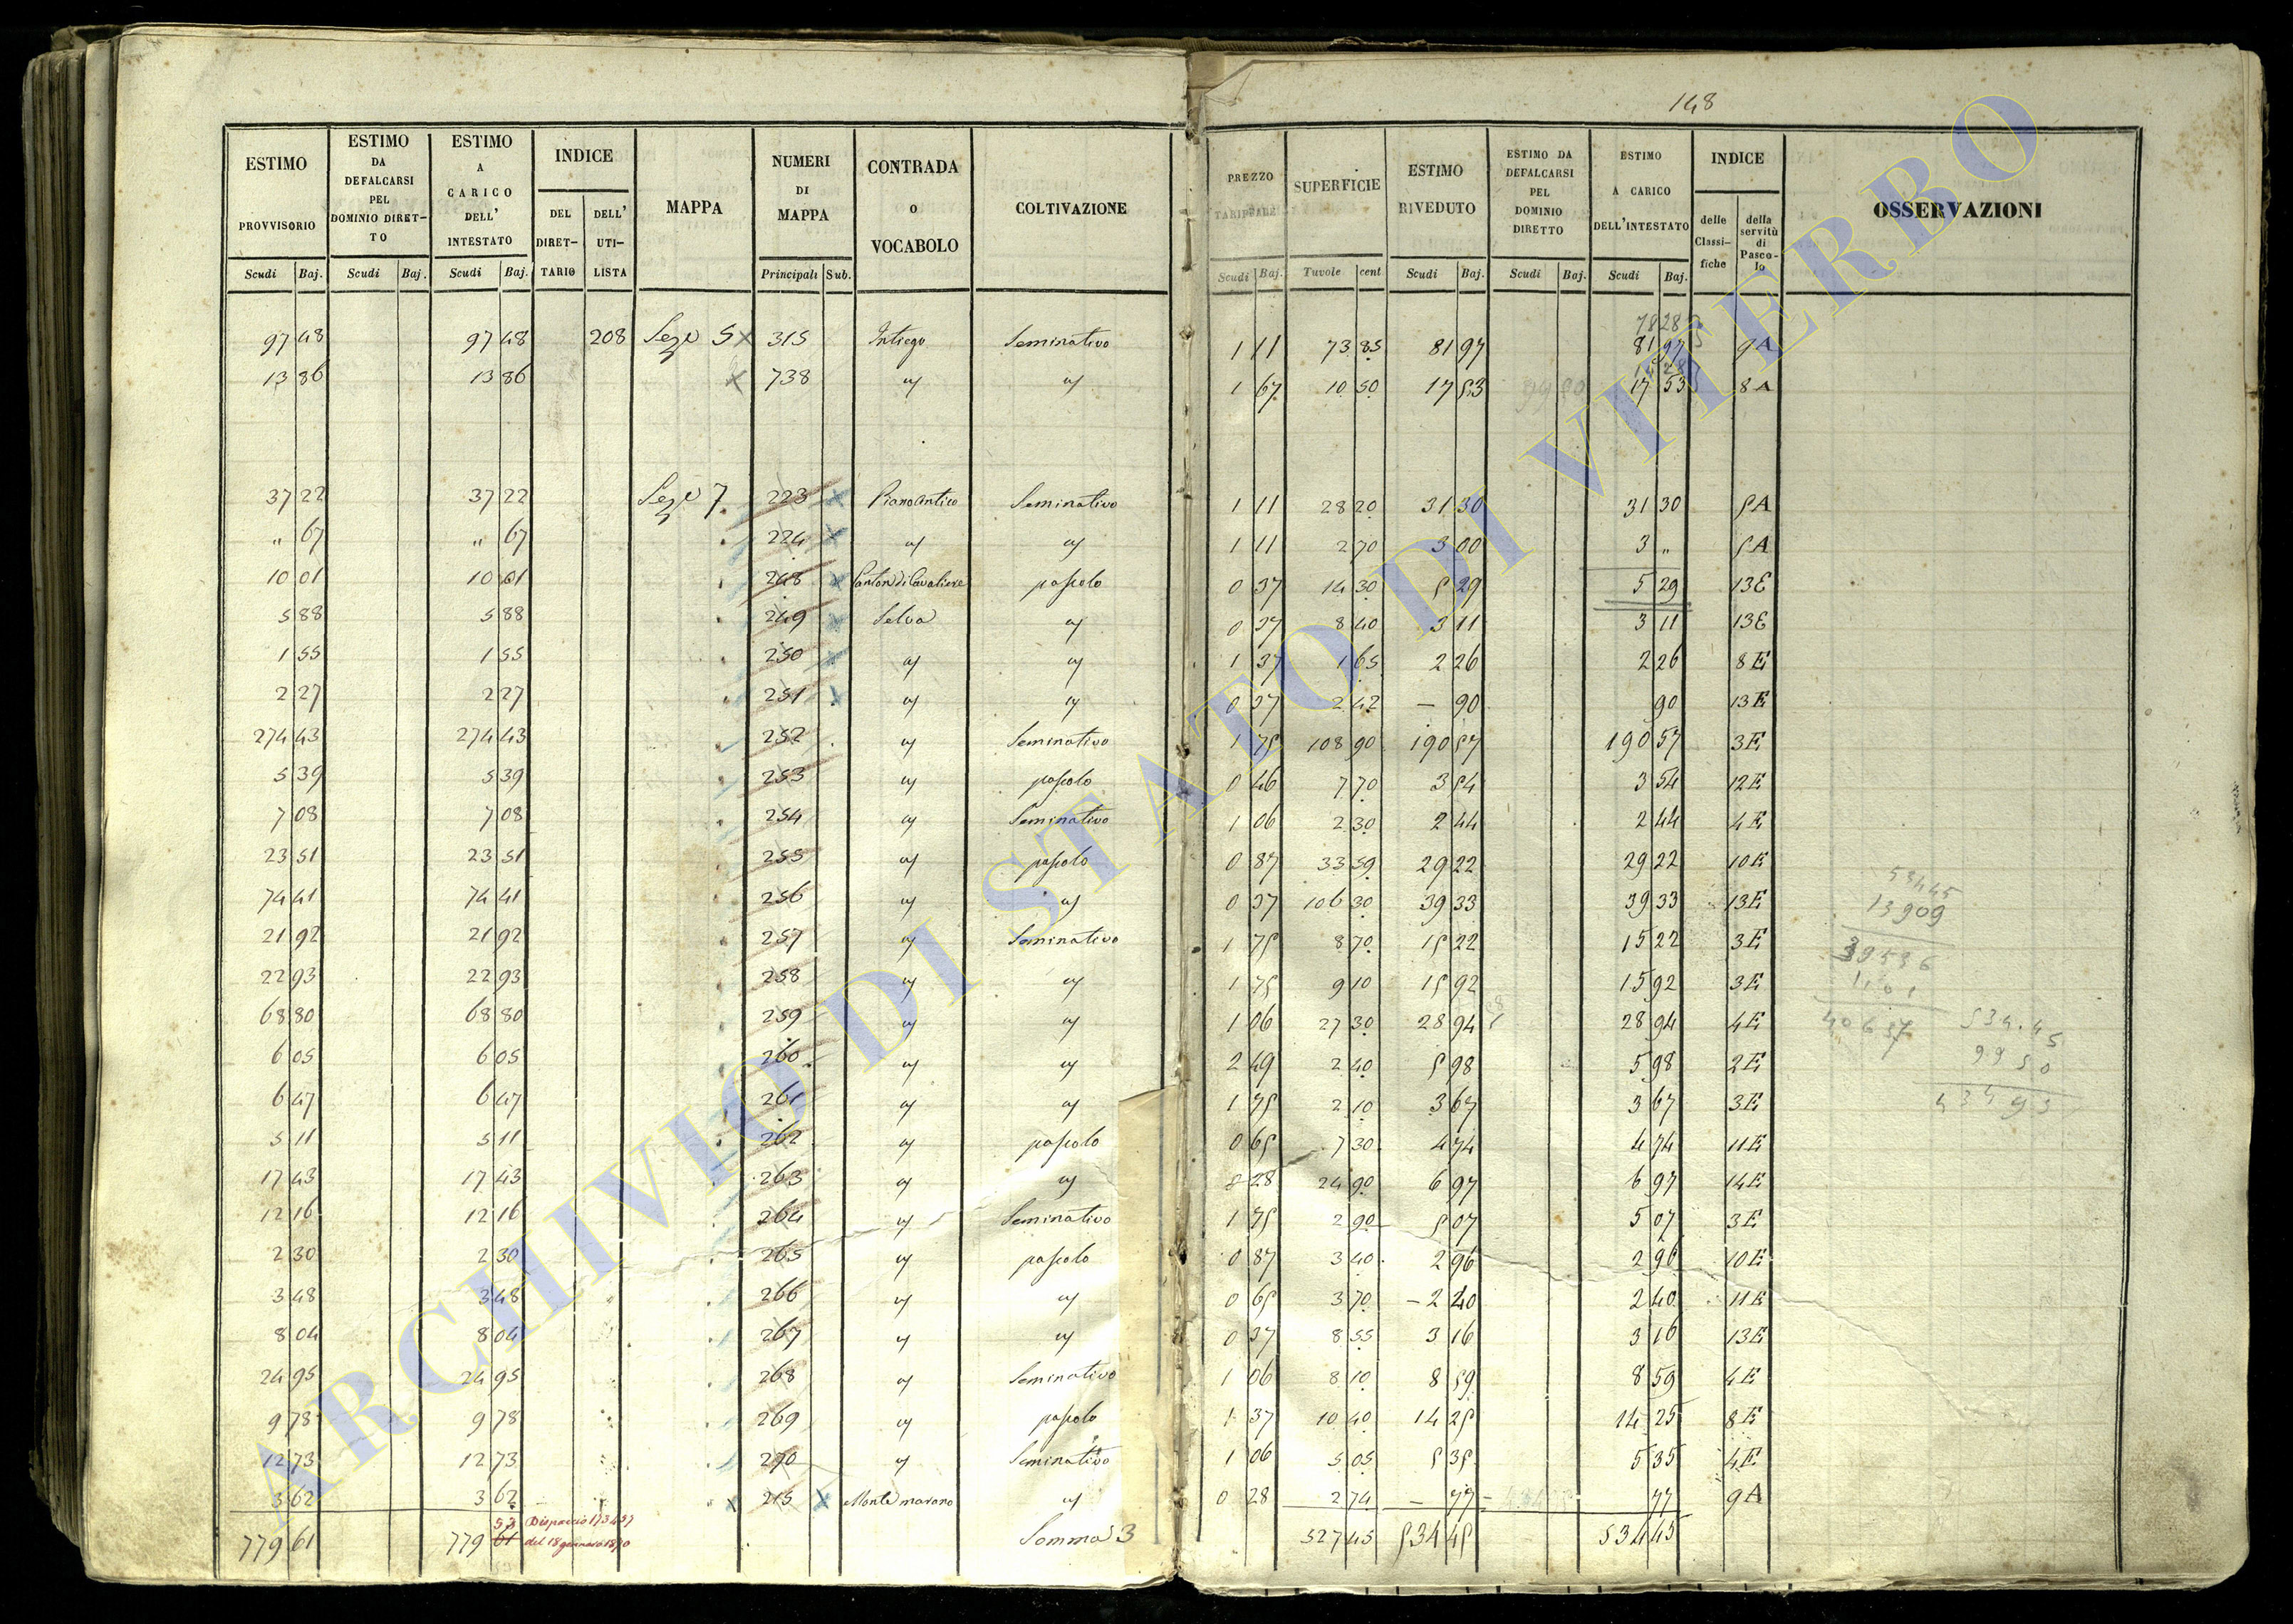 148
ESTIMO PROVVISORIO Scudi Baj.
ESTIMO DA DEFALCARSI PEL DOMINIO DIRET-TO Scudi Baj.
ESTIMO A CARICO DELL' INTESTATO Scudi Baj.
INDICE DEL DIRET-TARIO DELL' UTI-LISTA
MAPPA
NUMERI DI MAPPA Principali Sub.
CONTRADA O VOCABOLO
COLTIVAZIONE
PREZZO TARIFFALE Scudi Baj.
SUPERFICIE Tavole cent
ESTIMO RIVEDUTO Scudi Baj.
ESTIMO DA DEFALCARSI PEL DOMINIO DIRETTO Scudi Baj.
ESTIMO A CARICO DELL'INTESTATO Scudi Baj.
INDICE delle Classi-fiche della servitù di Pasco-lo
OSSERVAZIONI
78 28
97 48 97 48 208 Seze 5 x 315 Intiego Seminativo 1 11 73 85 81 97 81 97 9A
13 86 13 86 x 738 " " 1 67 10 50 17 53 17 53 8A
37 22 37 22 Sezе 7 223 x Piano Antico Seminativo 1 11 28 20 31 30 31 30 5A
" 67 " 67 224 x " " 1 11 2 70 3 00 3 " 5A
10 01 10 01 248 x Canton di Cavaliere pascolo 0 37 14 30 5 29 5 29 13E
5 88 5 88 249 x Selva " 0 37 8 40 3 11 3 11 13E
1 55 1 55 250 x " " 1 37 1 65 2 26 2 26 8E
2 27 2 27 251 x " " 0 37 2 42 — 90 90 13E
274 43 274 43 252 " Seminativo 1 75 108 90 190 57 190 57 3E
5 39 5 39 253 " pascolo 0 46 7 70 3 54 3 54 12E
7 08 7 08 254 " Seminativo 1 06 2 30 2 44 2 44 4E
23 51 23 51 255 " pascolo 0 87 33 59 29 22 29 22 10E
74 41 74 41 256 " " 0 37 106 30 39 33 39 33 13E
21 92 21 92 257 " Seminativo 1 75 8 70 15 22 15 22 3E
22 93 22 93 258 " " 1 75 9 10 15 92 15 92 3E
68 80 68 80 259 " " 1 06 27 30 28 94 28 94 4E
6 05 6 05 260 " " 2 49 2 40 5 98 5 98 2E
6 47 6 47 261 " " 1 75 2 10 3 67 3 67 3E
5 11 5 11 262 " pascolo 0 65 7 30 4 74 4 74 11E
17 43 17 43 263 " " 0 28 24 90 6 97 6 97 14E
12 16 12 16 264 " Seminativo 1 75 2 90 5 07 5 07 3E
2 30 2 30 265 " pascolo 0 87 3 40 2 96 2 96 10E
3 48 3 48 266 " " 0 65 3 70 2 40 2 40 11E
8 04 8 04 267 " " 0 37 8 55 3 16 3 16 13E
24 95 24 95 268 " Seminativo 1 06 8 10 8 59 8 59 4E
9 78 9 78 269 " pascolo 1 37 10 40 14 25 14 25 8E
12 73 12 73 270 " Seminativo 1 06 5 05 5 35 5 35 4E
3 62 3 62 x 215 x Monte marano " 0 28 2 74 — 77 77 9A
53 Dispaccio 173437
779 61 779 61 del 18 gennaro 1870 Somma 3 527 45 534 45 534 45
53445
13909
39536
1101
40637
534.45
99 50
434 95
ARCHIVIO DI STATO DI VITERBO